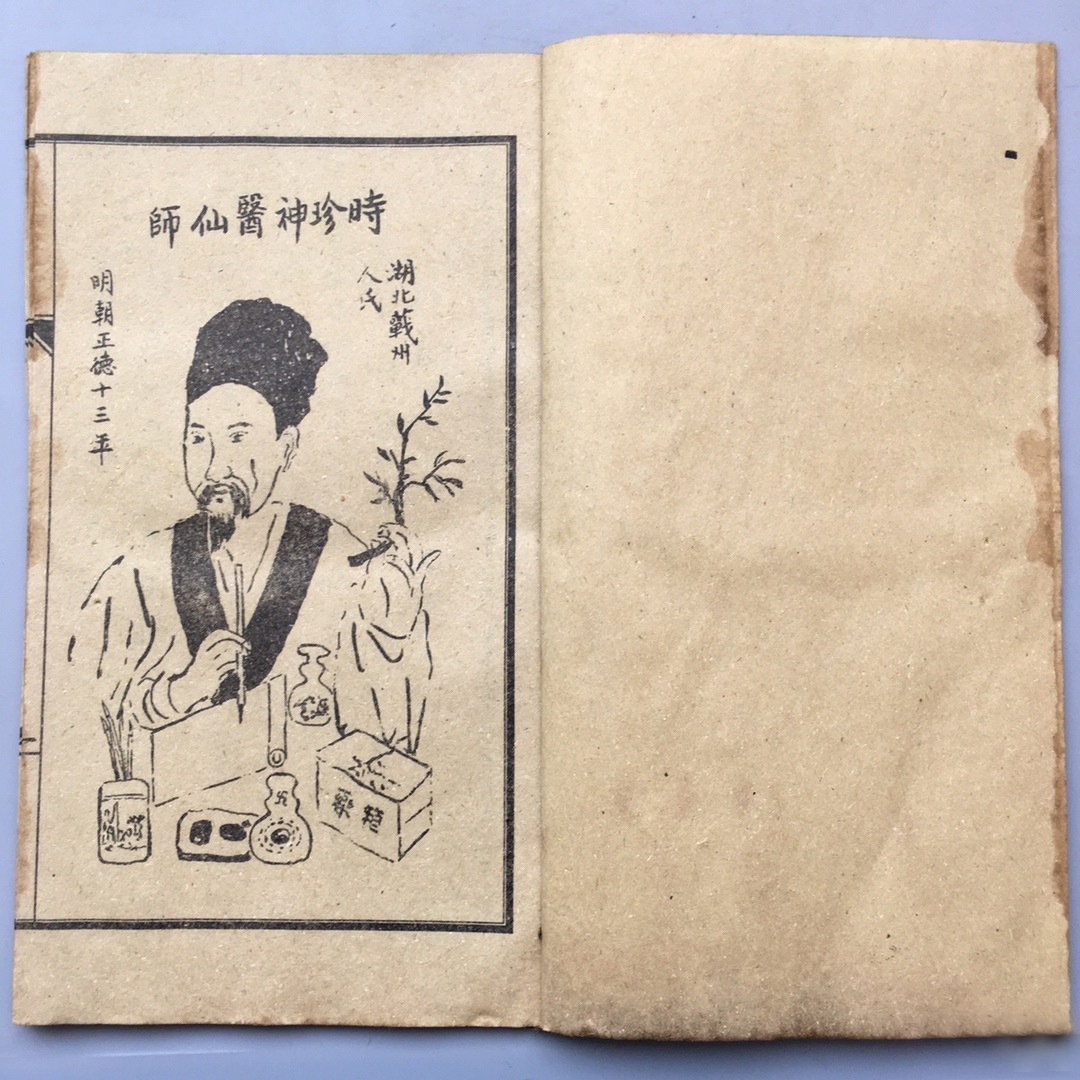 時珍神醫仙師
湖北蘄州
人氏
明朝正德十三年
藥箱